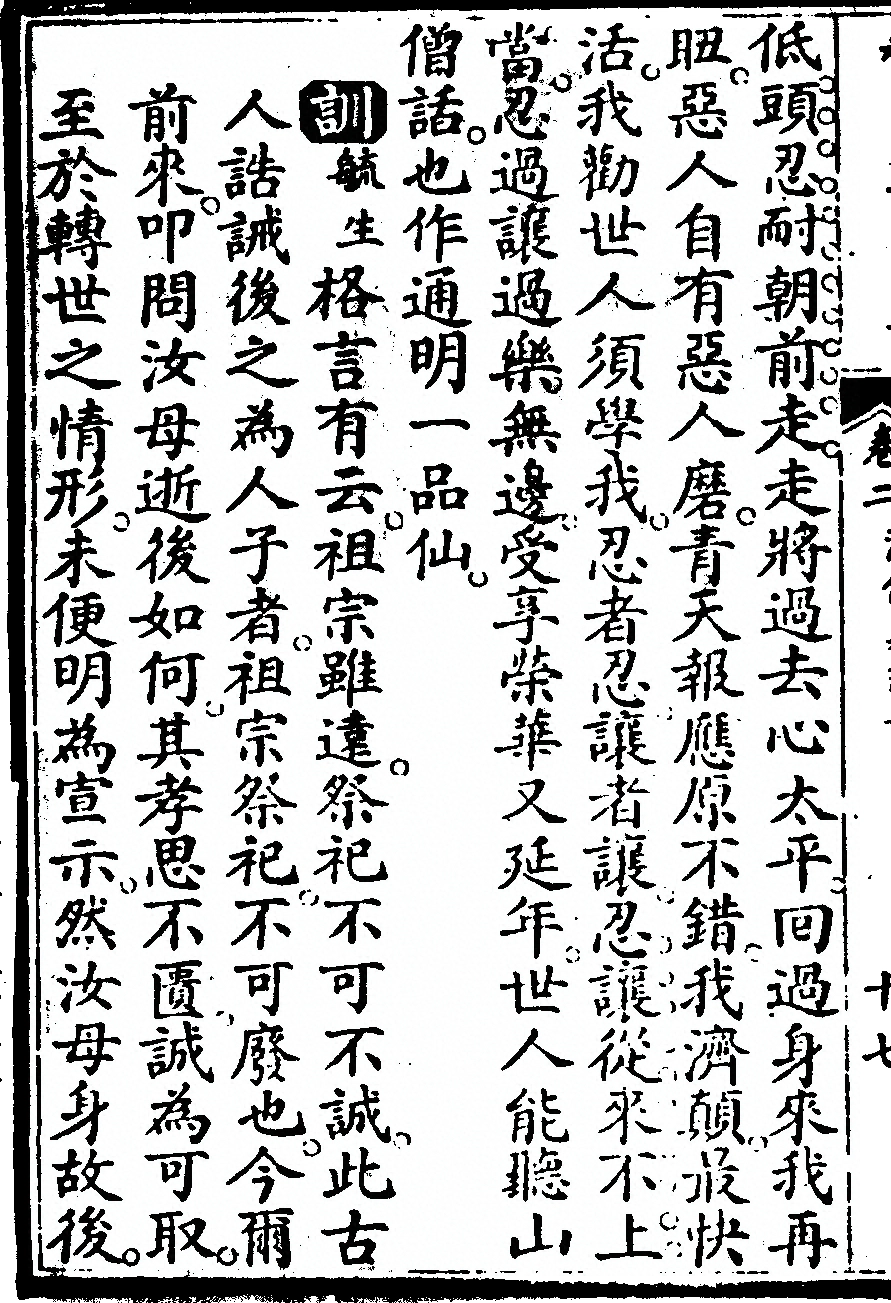 低頭忍耐朝前走走將過去心太平回過身來我再
䏔惡人自有惡人磨青天報應原不錯我濟顛最快
活我勸世人須學我忍者忍讓者讓忍讓從來不上
當忍過讓過樂無邊受享榮華又延年世人能聽山
僧話也作通明一品仙
訓毓生格言有云祖宗雖遠祭祀不可不誠此古
人誥誡後之為人子者祖宗祭祀不可廢也今爾
前來叩問汝母逝後如何其孝思不匱誠為可取
至於轉世之情形未便明為宣示然汝母身故後
卷二
十七